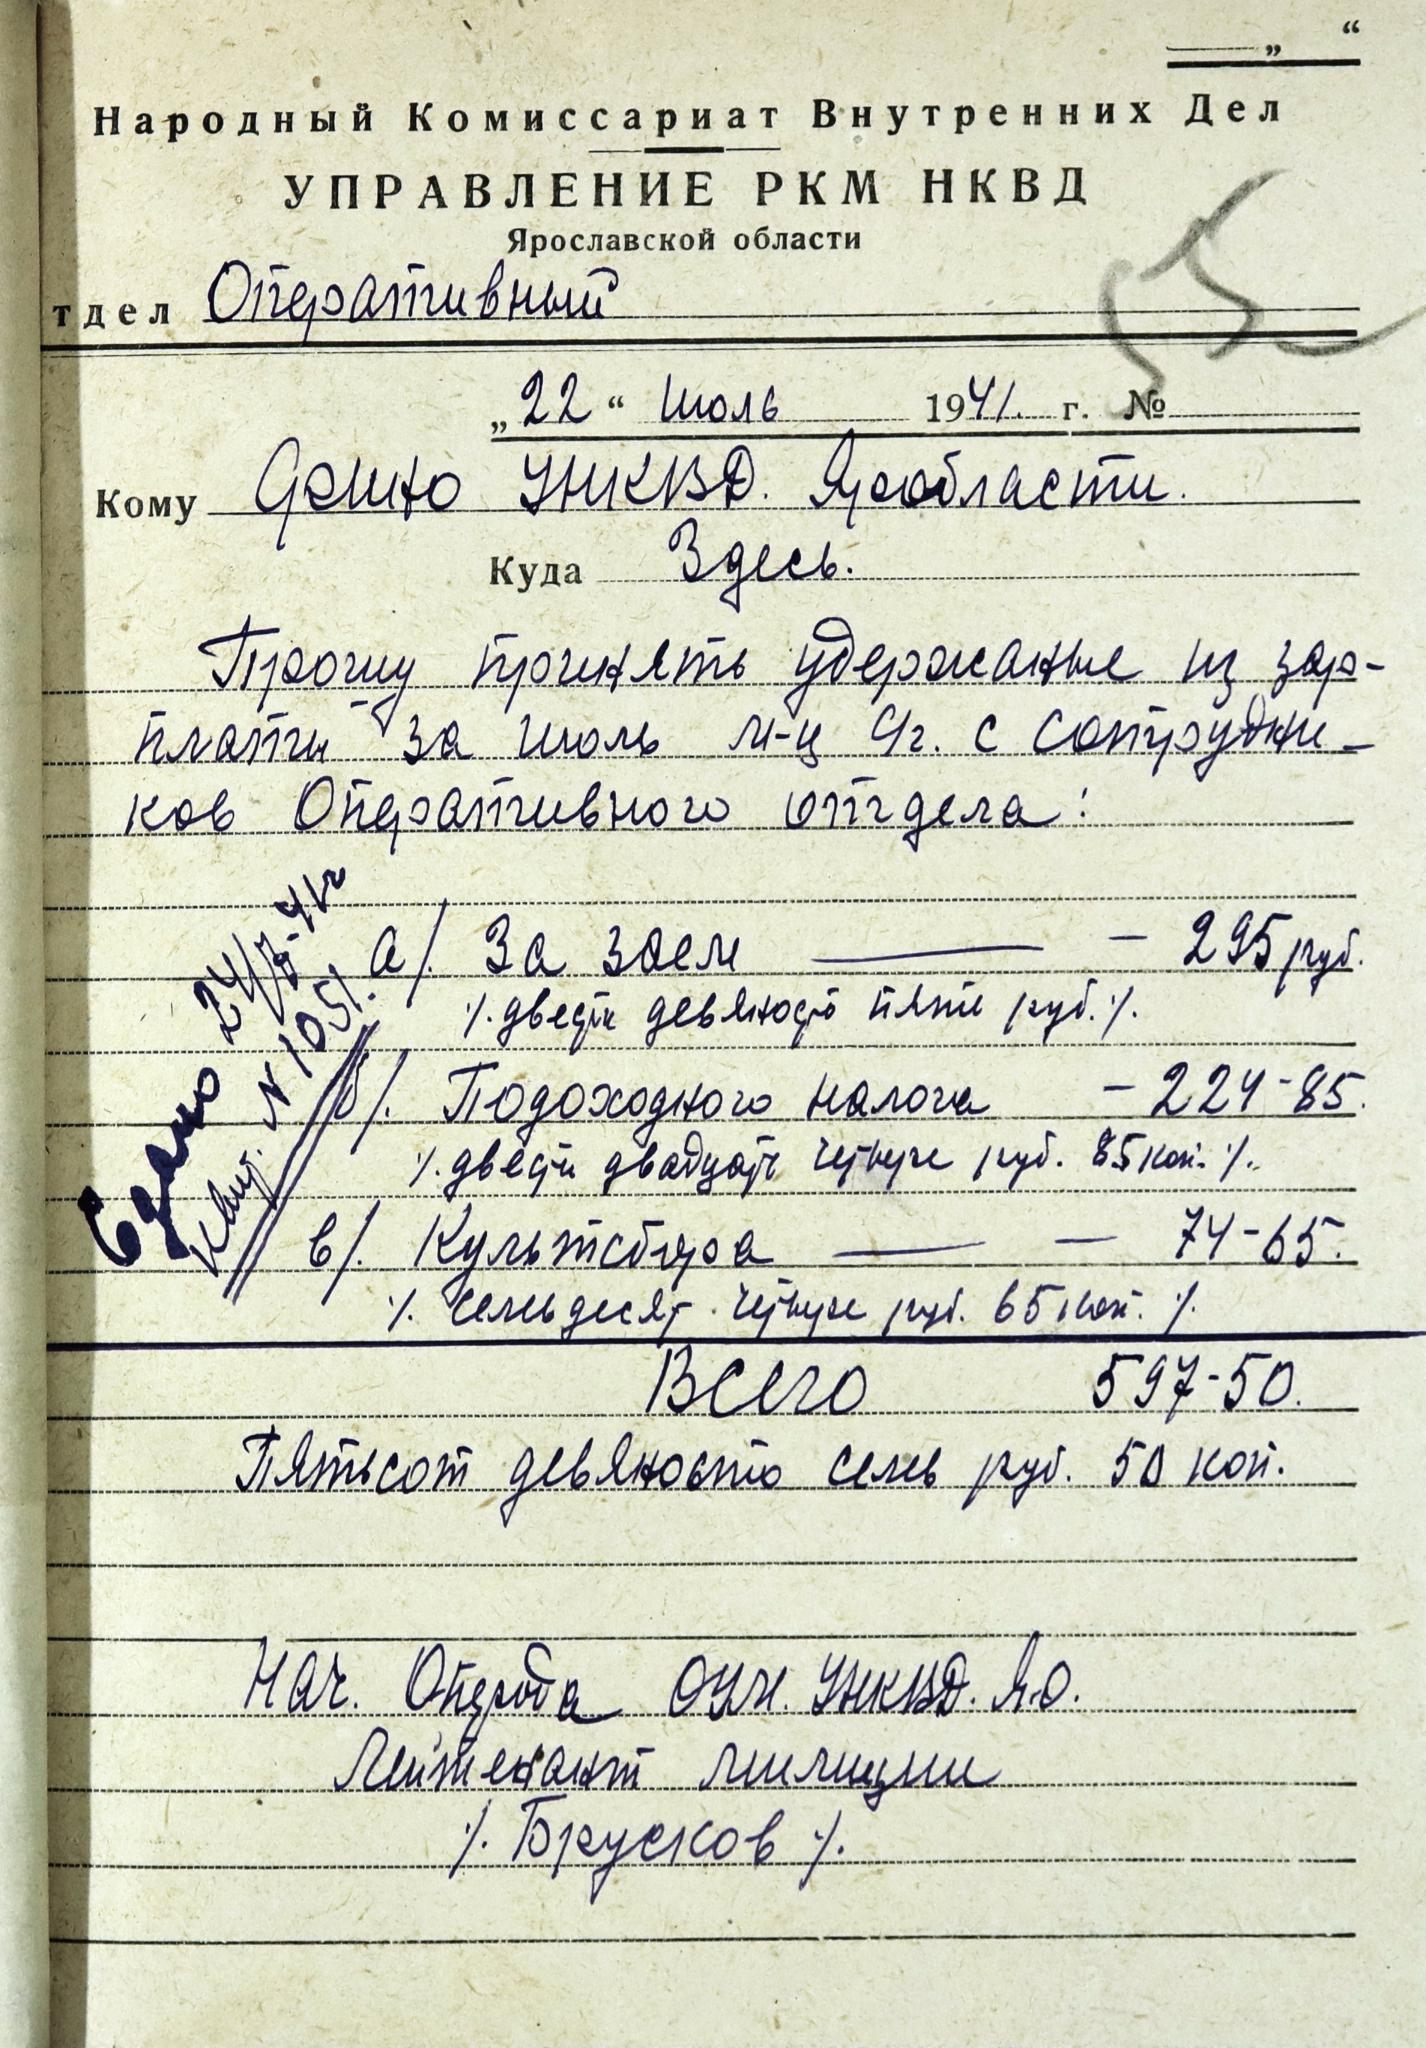 „ “
Народный Комиссариат Внутренних Дел
УПРАВЛЕНИЕ РКМ НКВД
Ярославской области
тдел Оперативный
„22“ Июль 1941. г. №
Кому УНКВД. Яробласти.
Куда Здесь.
Прошу принять удержание из зар-
платы за июль м-ц 41г. с сотрудни-
ков Оперативного отдела:
Сдано 24/7-41г
Квит. N 1051.
а/. За заем — — 295 руб.
/. двести девяносто пять руб. /.
б/. Подоходного налога — 224-85.
/. двести двадцать четыре руб. 85 коп. /.
в/. Культсбора — — 74-65.
/. семьдесят четыре руб. 65 коп. /.
Всего 597-50.
Пятьсот девяносто семь руб. 50 коп.
Нач. УНКВД. Я.О.
Лейтенант милиции
/. Брусков /.